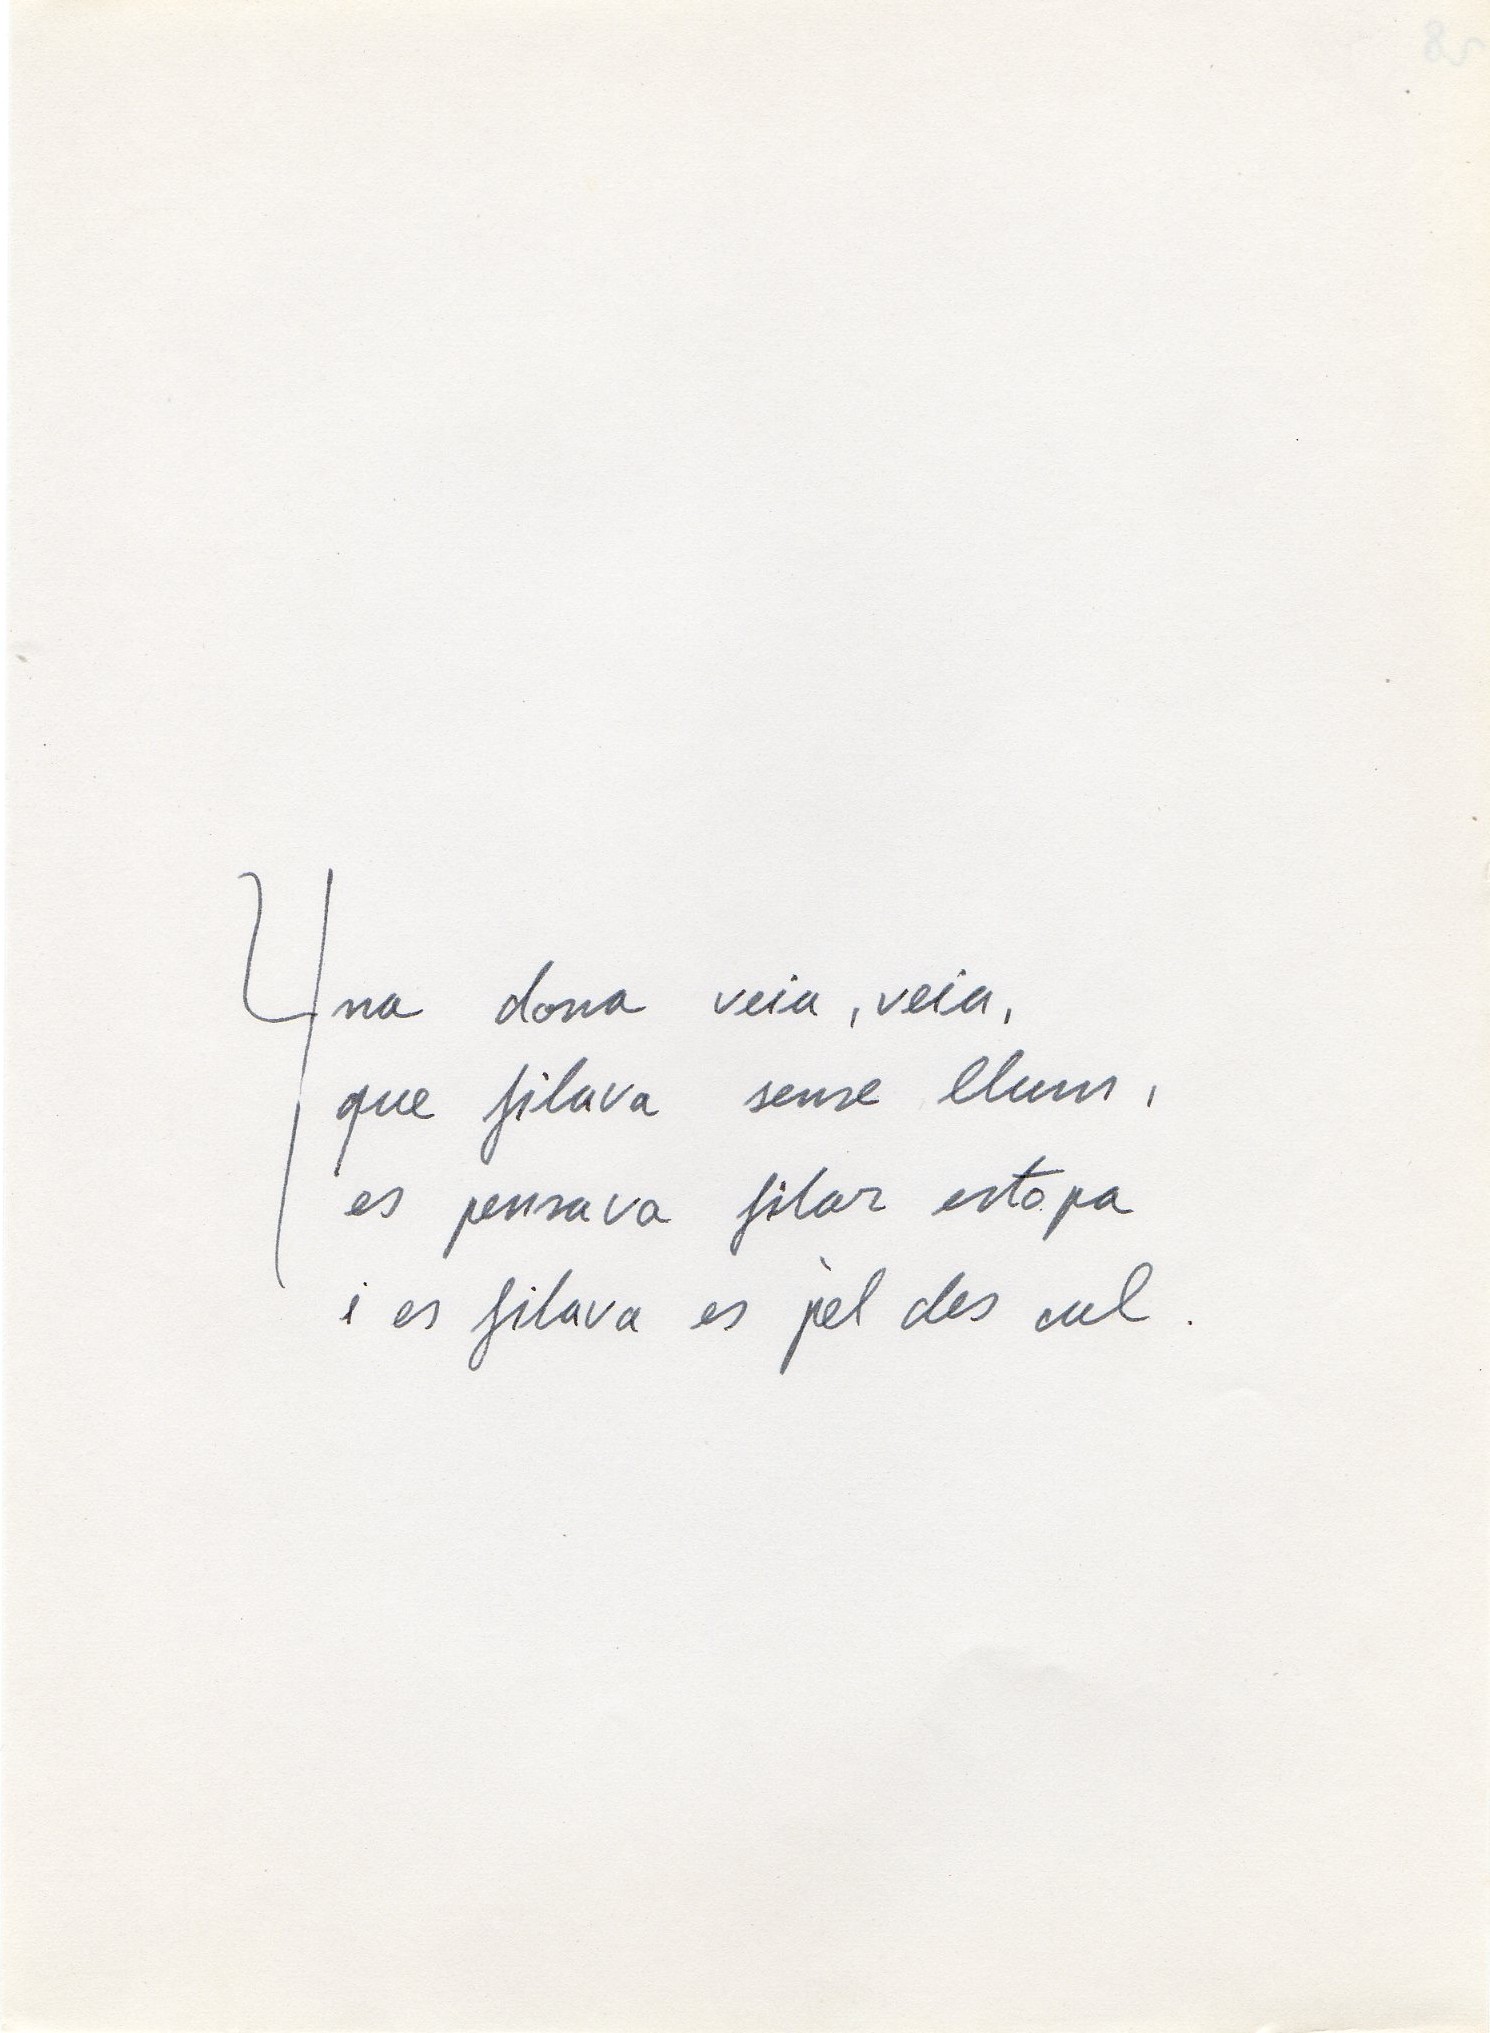 Una dona veia, veia,
que filava sense llum,
es pensava filar estopa
i es filava es pèl des cul.